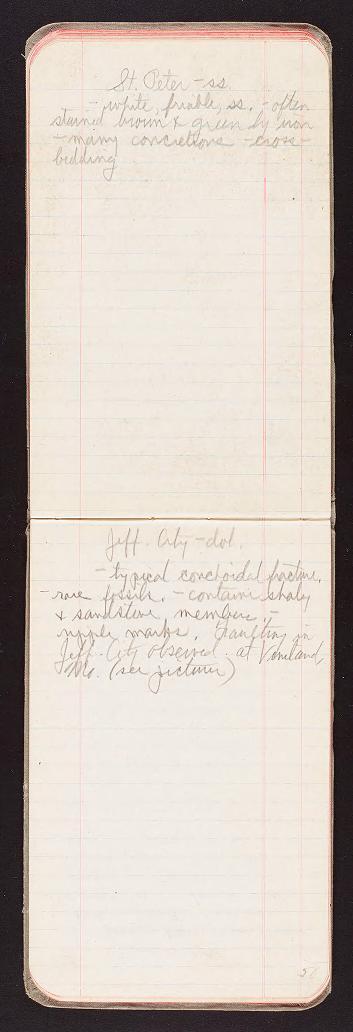 St. Peter - ss.
- white, friable, ss. - often
stained brown & green by iron
- many concretions - cross-
bedding
Jeff. City - dol.
- typical conchoidal fracture.
- rare fossils. - contains shaly
& sandstone members. -
ripple marks. Faulting in
Jeff. City observed at Vineland,
Mo. (see picture)